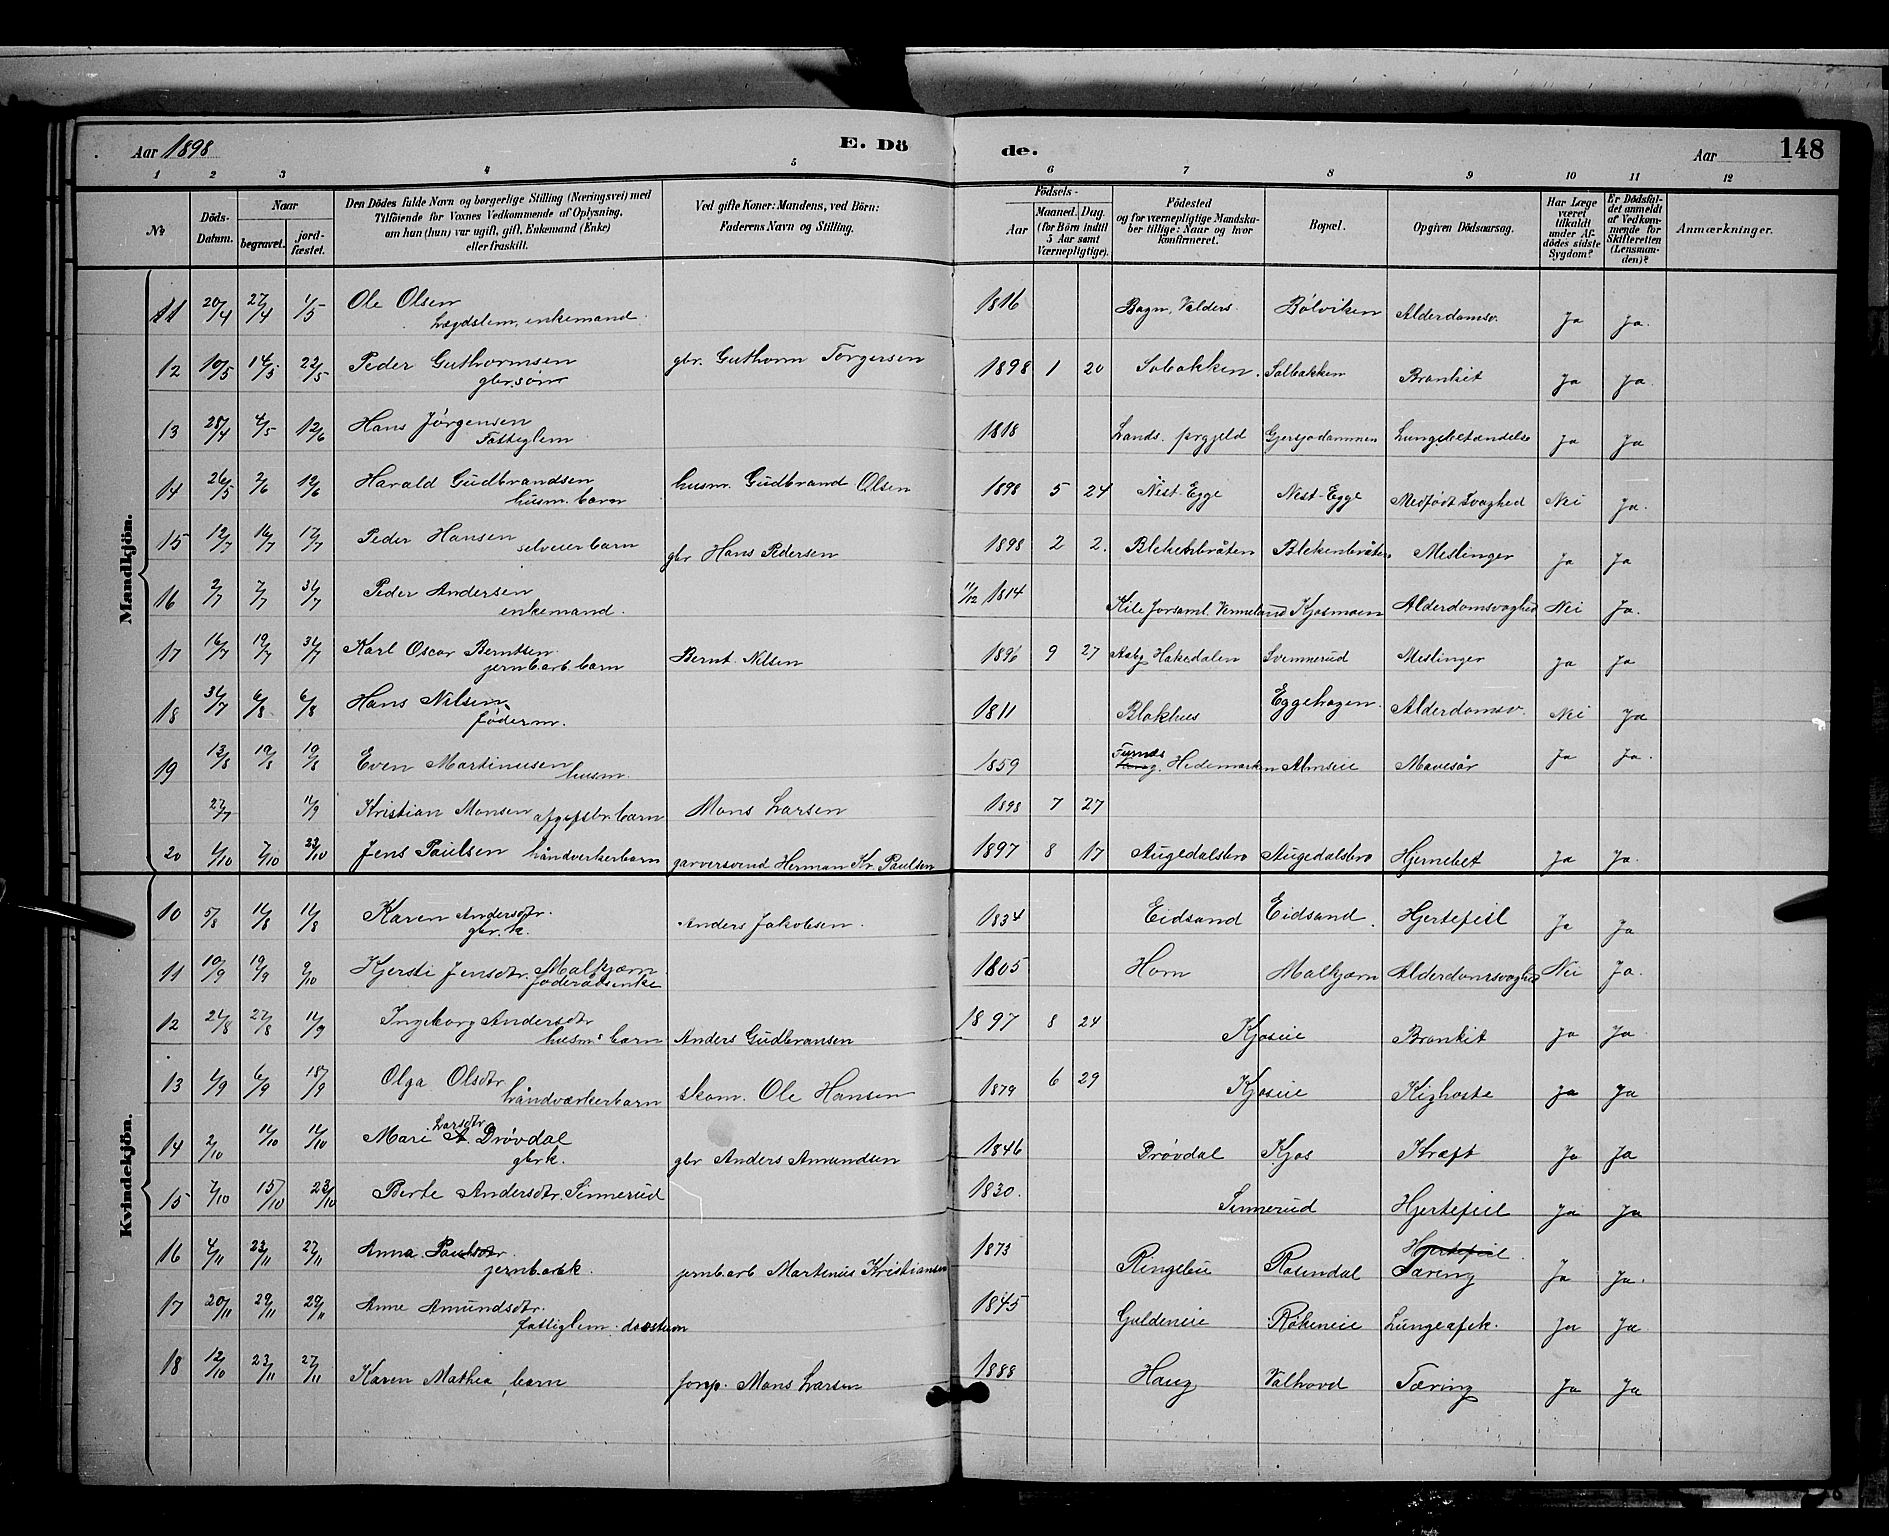 Aar 1898
E. Dö
de.
Aar
148
1 2 3 4 5 6 7 8 9 10 11 12
No
Döds-Datum.
Naar
begravet.
jord-fæstet.
Den Dödes fulde Navn og borgerlige Stilling (Næringsvei) med
Tilföiende for Voxnes Vedkommende af Oplysning,
om hun (hun) var ugift, gift, Enkemand (Enke)
eller fraskilt.
Ved gifte Koner: Mandens, ved Börn:
Faderens Navn og Stilling.
Födsels-
Aar
Maaned.
Dag.
(for Börn indtil
5 Aar samt
Værnepligtige).
Födested
og for værnepligtige Mandska-
ber tillige: Naar og hvor
konfirmeret.
Bopæl.
Opgiven Dödsaarsag.
Har Læge
været
tilkaldt
under Af-
dödes sidste
Sygdom?
Er Dödsfal-
det anmeldt
af Vedkom-
mende for
Skifteretten
(Lensman-
den)?
Anmærkninger.
Mandkjön.
11 20/4 27/4 1/5 Ole Olsen 1816 Bagn, Valders. Bölviken Alderdomsv. Ja Ja.
Lægdslem, enkemand.
12 10/5 14/5 22/5 Peder Guthormsen gbr. Guthorm Torgersen 1898 1 20 Solbakken. Solbakken Bronkit Ja Ja.
gbr.søn
13 28/4 4/5 12/6 Hans Jörgensen 1818 Lands. prgjeld Gjersjødammen Lungebetændelse Ja Ja
Fattiglem
14 26/5 2/6 12/6 Harald Gudbrandsen husm. Gudbrand Olsen 1898 5 24 Nest-Egge Nest-Egge Medfödt Svaghed Nei Ja.
husm. barn
15 12/7 16/7 17/7 Peder Hansen gbr Hans Pedersen 1898 2 2. Blekenbråten Blekenbråten Meslinger Ja Ja
selveierbarn
16 2/7 7/7 31/7 Peder Andersen 11/12 1814 Kile Forsaml. Vermeland Kjosmoen Alderdomsvaghed Nei Ja.
enkemand.
17 16/7 19/7 31/7 Karl Oscar Berntsen Bernt Nilsen 1896 9 27 Aaby Hakedalen Svennerud Meslinger Ja Ja
jernb.arb. barn
18 31/7 6/8 6/8 Hans Nilsen 1811 Blokhus Eggehagen. Alderdomsv. Nei Ja
föderm.
19 13/8 19/8 19/8 Even Martinusen 1859 Furnæs Hedemarken Almseie Mavesår Ja Ja.
husm.
27/7 11/9 Kristian Monsen afgiftsbr. barn Mons Larsen 1898 7 27
20 1/10 7/10 23/10 Jens Paulsen håndverkerbarn garversvend Herman Kr. Paulsen 1897 8 17 Augedalsbro Augedalsbro Hjernebet Ja Ja.
Kvindekjön.
10 5/8 14/8 14/8 Karen Andersdtr. Anders Jakobsen. 1834 Eidsand Eidsand. Hjertefeil Ja Ja
gbr. k.
11 10/9 19/9 9/10 Kjersti Jensdtr. Malkjærn 1805 Horn Malkjærn Alderdomsvaghed Nei Ja.
föderådsenke
12 21/8 27/8 11/9 Ingeborg Andersdtr Anders Gudbransen 1897 8 24 Kjoseie Bronkit Ja Ja.
husms barn
13 1/9 6/9 18/9 Olga Olsdtr skom. Ole Hansen 1879 6 29 Kjoseie Kighoste Ja Ja
håndværkerbarn
Larsdtr
14 2/10 14/10 14/10 Mari A Drövdal gbr Anders Amundsen 1846 Drövdal Kjos Kræft Ja Ja
gbrk.
15 7/10 15/10 23/10 Berte Andersdtr. Sinnerud 1830. Sinnerud Hjertefeil Ja Ja
16 4/11 23/11 27/11 Anna Paulsdtr. jernb.arb Martenius Kristiansen 1873 Ringebu Rosendal Hjertefeil. Tæring Ja Ja.
jernbarbk.
17 20/11 29/11 29/11 Anne Amundsdtr. 1845 Guldeneie Rökeneie Lungeafek. Ja Ja
fattiglem. döfstum
18 12/10 23/11 27/11 Karen Mathea, barn forp. Mons Larsen 1888 Haug Valhovd Tæring Ja Ja